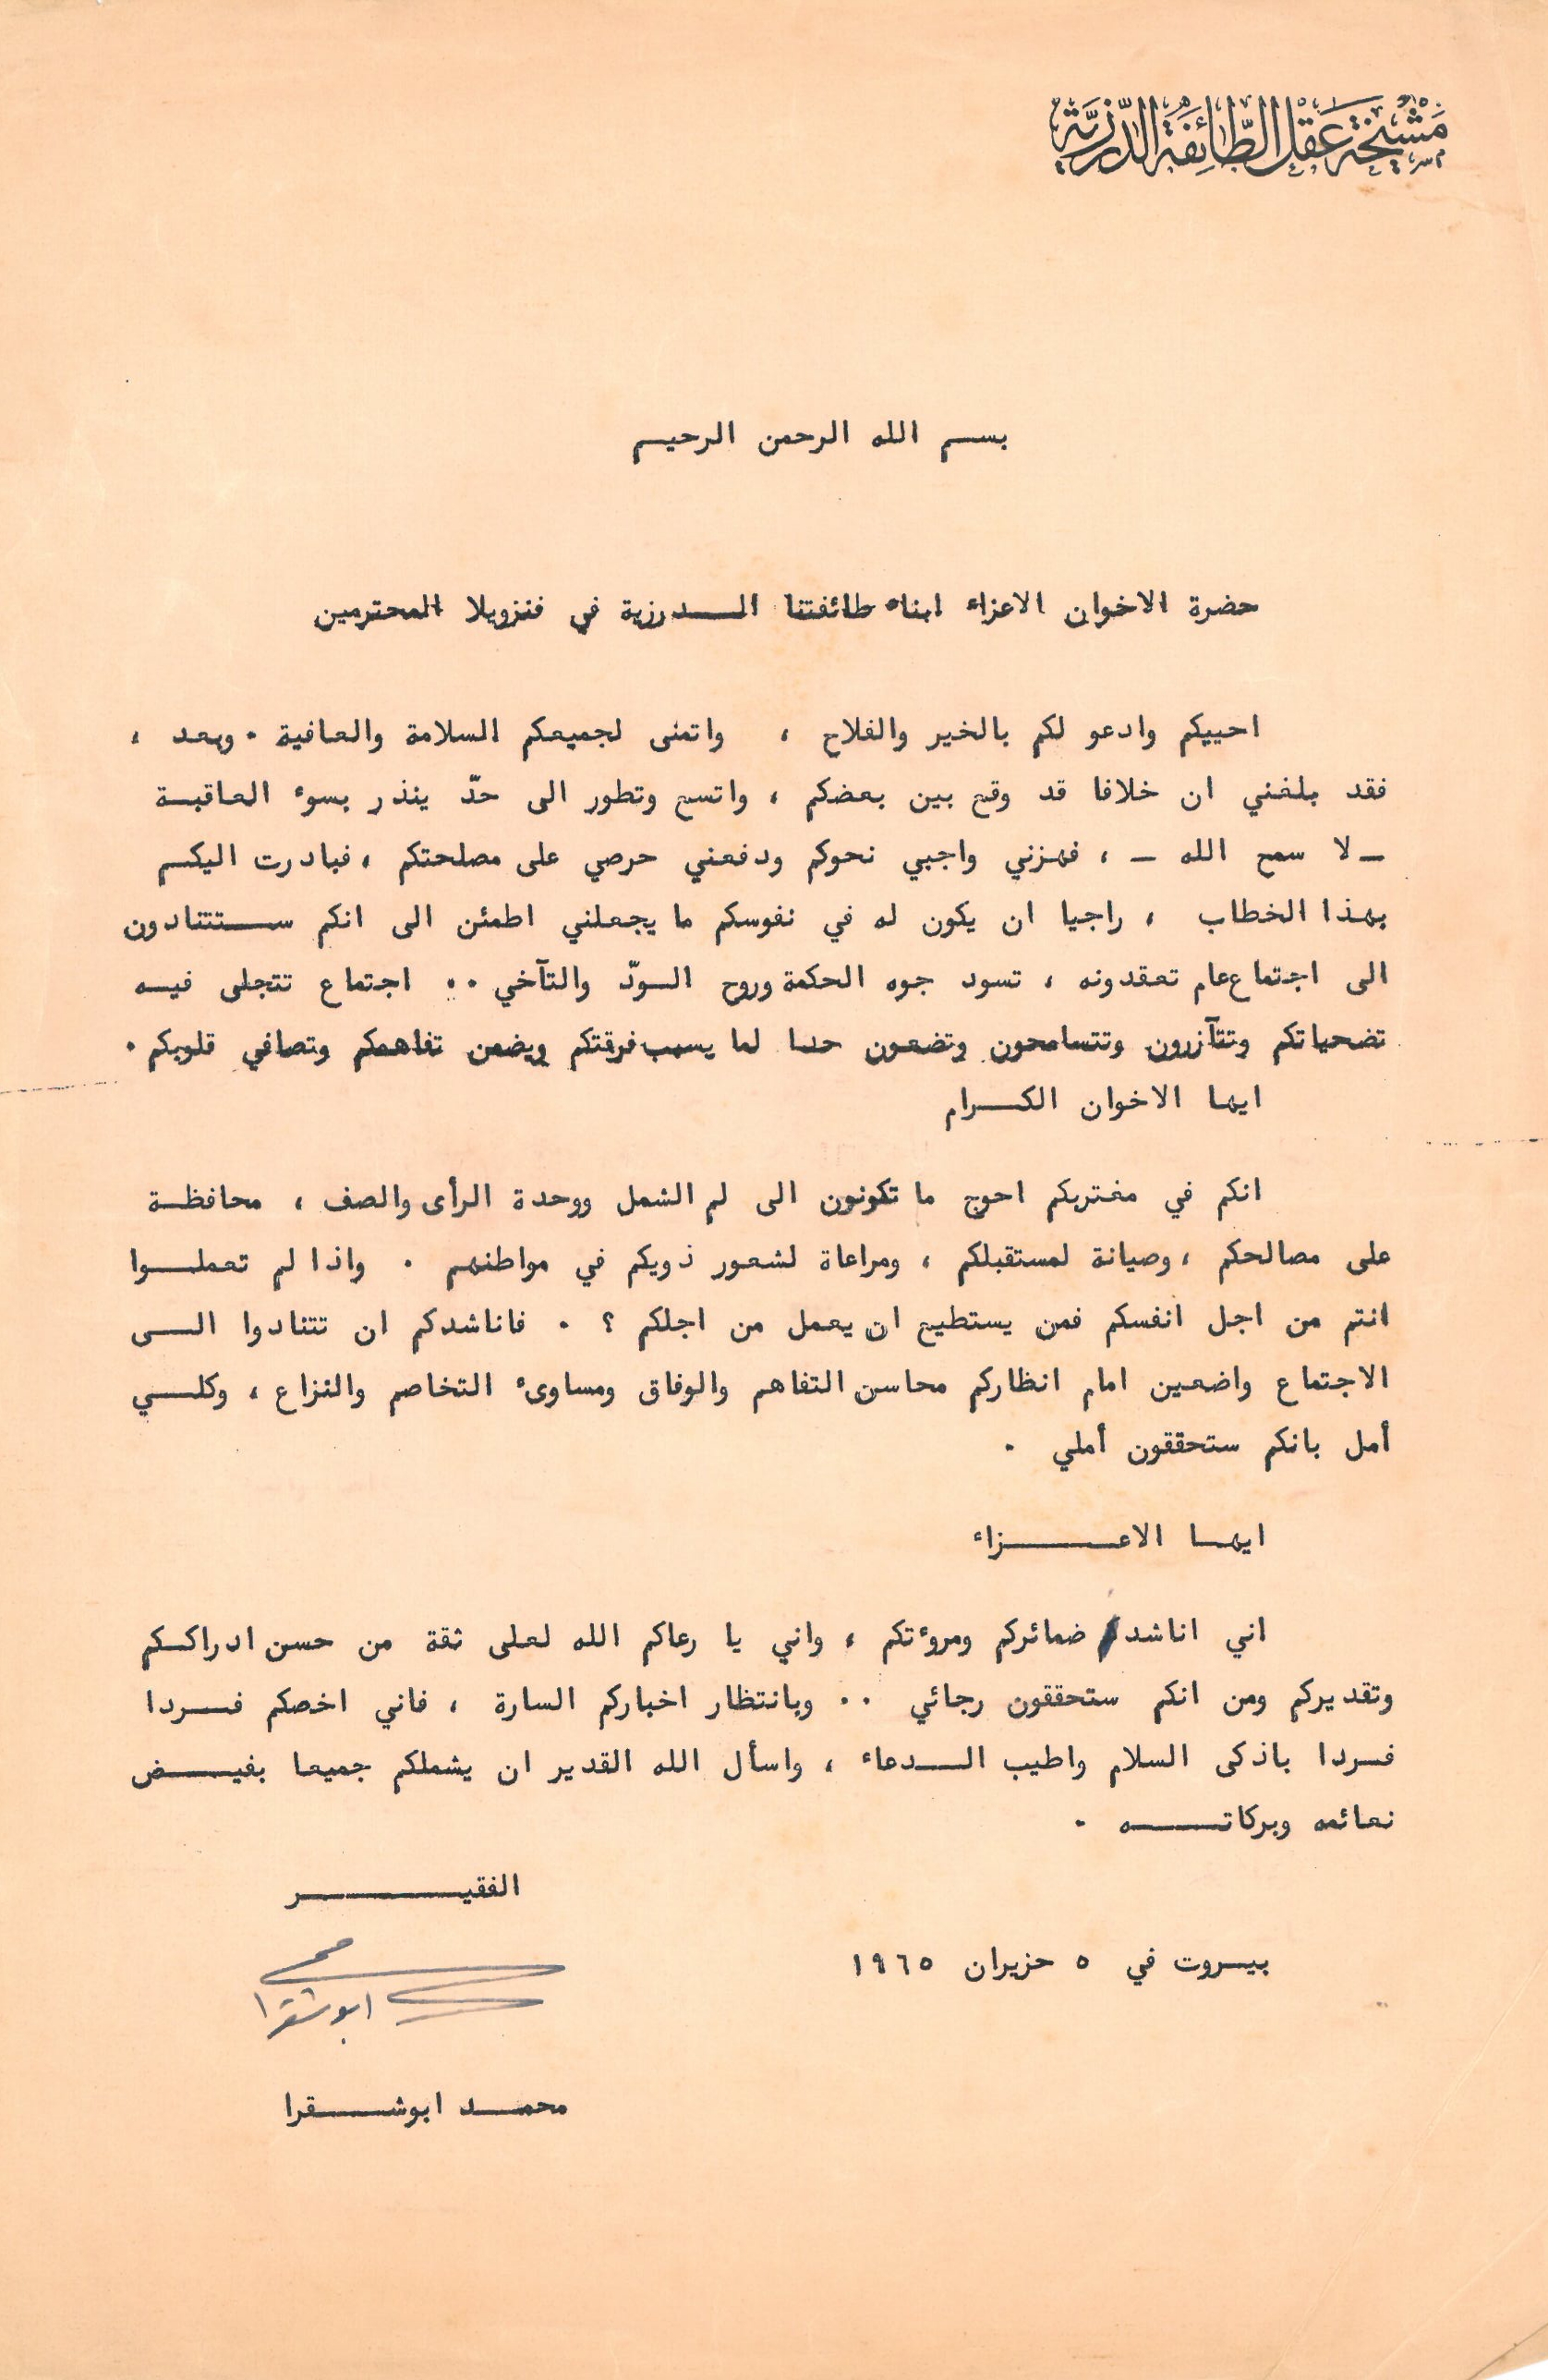 مشيخة عقل الطائفة الدرزية
بسم الله الرحمن الرحيم
حضرة الاخوان الاعزاء ابناء طائفتنا الدرزية في فنزويلا المحترمين
احييكم وادعو لكم بالخير والفلاح ، واتمنى لجميعكم السلامة والعافية . وبعد ،
فقد بلغني ان خلافا قد وقع بين بعضكم ، واتسع وتطور الى حدّ ينذر بسوء العاقبة
- لا سمح الله - ، فهزني واجبي نحوكم ودفعني حرصي على مصلحتكم ، فبادرت اليكم
بهذا الخطاب ، راجيا ان يكون له في نفوسكم ما يجعلني اطمئن الى انكم ستتنادون
الى اجتماع عام تعقدونه ، تسود جوه الحكمة وروح الودّ والتآخي .. اجتماع تتجلى فيه
تضحياتكم وتتآزرون وتتسامحون وتضعون حدا لما يسبب فرقتكم ويضمن تفاهمكم وتصافي قلوبكم .
ايها الاخوان الكرام
انكم في مغتربكم احوج ما تكونون الى لم الشمل ووحدة الرأى والصف ، محافظة
على مصالحكم ، وصيانة لمستقبلكم ، ومراعاة لشعور ذويكم في مواطنهم . واذا لم تعملوا
انتم من اجل انفسكم فمن يستطيع ان يعمل من اجلكم ؟ . فاناشدكم ان تتنادوا الى
الاجتماع واضعين امام انظاركم محاسن التفاهم والوفاق ومساوىء التخاصم والنزاع ، وكلي
أمل بانكم ستحققون أملي .
ايها الاعزاء
اني اناشد ضمائركم ومروءتكم ، واني يا رعاكم الله لعلى ثقة من حسن ادراككم
وتقديركم ومن انكم ستحققون رجائي .. وبانتظار اخباركم السارة ، فاني اخصكم فردا
فردا باذكى السلام واطيب الدعاء ، واسأل الله القدير ان يشملكم جميعا بفيض
نعائمه وبركاته .
الفقير
بيروت في ٥ حزيران ١٩٦٥
محمد
ابو شقرا
محمد ابوشقرا